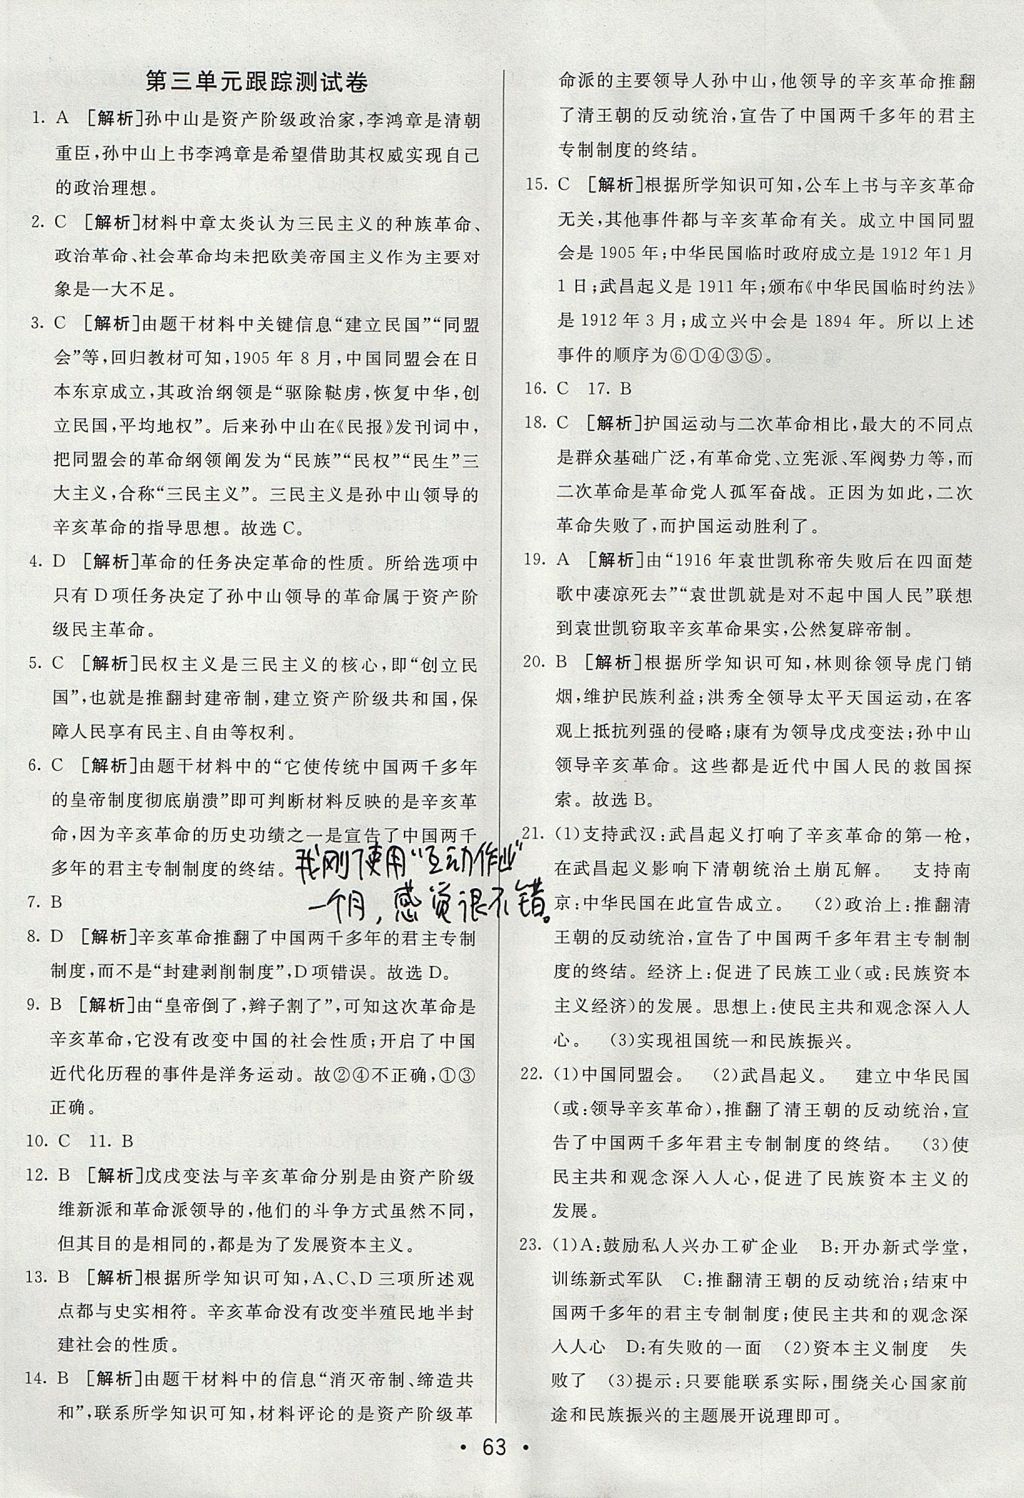 第三单元跟踪测试卷
1. A [解析]孙中山是资产阶级政治家,李鸿章是清朝
重臣,孙中山上书李鸿章是希望借助其权威实现自己
的政治理想。
2. C [解析]材料中章太炎认为三民主义的种族革命、
政治革命、社会革命均未把欧美帝国主义作为主要对
象是一大不足。
3. C [解析]由题干材料中关键信息“建立民国”“同盟
会”等,回归教材可知,1905年8月,中国同盟会在日
本东京成立,其政治纲领是“驱除鞑虏,恢复中华,创
立民国,平均地权”。后来孙中山在《民报》发刊词中,
把同盟会的革命纲领阐发为“民族”“民权”“民生”三
大主义,合称“三民主义”。三民主义是孙中山领导的
辛亥革命的指导思想。故选C。
4. D [解析]革命的任务决定革命的性质。所给选项中
只有D项任务决定了孙中山领导的革命属于资产阶
级民主革命。
5. C [解析]民权主义是三民主义的核心,即“创立民
国”,也就是推翻封建帝制,建立资产阶级共和国,保
障人民享有民主、自由等权利。
6. C [解析]由题干材料中的“它使传统中国两千多年
的皇帝制度彻底崩溃”即可判断材料反映的是辛亥革
命,因为辛亥革命的历史功绩之一是宣告了中国两千
多年的君主专制制度的终结。
我刚使用“互动作业”
一个月,感觉很不错。
7. B
8. D [解析]辛亥革命推翻了中国两千多年的君主专制
制度,而不是“封建剥削制度”,D项错误。故选D。
9. B [解析]由“皇帝倒了,辫子割了”,可知这次革命是
辛亥革命,它没有改变中国的社会性质;开启了中国
近代化历程的事件是洋务运动。故②④不正确,①③
正确。
10. C 11. B
12. B [解析]戊戌变法与辛亥革命分别是由资产阶级
维新派和革命派领导的,他们的斗争方式虽然不同,
但其目的是相同的,都是为了发展资本主义。
13. B [解析]根据所学知识可知,A、C、D三项所述观
点都与史实相符。辛亥革命没有改变半殖民地半封
建社会的性质。
14. B [解析]由题干材料中的信息“消灭帝制、缔造共
和”,联系所学知识可知,材料评论的是资产阶级革
命派的主要领导人孙中山,他领导的辛亥革命推翻
了清王朝的反动统治,宣告了中国两千多年的君主
专制制度的终结。
15. C [解析]根据所学知识可知,公车上书与辛亥革命
无关,其他事件都与辛亥革命有关。成立中国同盟
会是1905年;中华民国临时政府成立是1912年1月
1日;武昌起义是1911年;颁布《中华民国临时约法》
是1912年3月;成立兴中会是1894年。所以上述
事件的顺序为⑥①④③⑤。
16. C 17. B
18. C [解析]护国运动与二次革命相比,最大的不同点
是群众基础广泛,有革命党、立宪派、军阀势力等,而
二次革命是革命党人孤军奋战。正因为如此,二次
革命失败了,而护国运动胜利了。
19. A [解析]由“1916年袁世凯称帝失败后在四面楚
歌中凄凉死去”“袁世凯就是对不起中国人民”联想
到袁世凯窃取辛亥革命果实,公然复辟帝制。
20. B [解析]根据所学知识可知,林则徐领导虎门销
烟,维护民族利益;洪秀全领导太平天国运动,在客
观上抵抗列强的侵略;康有为领导戊戌变法;孙中山
领导辛亥革命。这些都是近代中国人民的救国探
索。故选B。
21. (1)支持武汉:武昌起义打响了辛亥革命的第一枪,
在武昌起义影响下清朝统治土崩瓦解。 支持南
京:中华民国在此宣告成立。 (2)政治上:推翻清
王朝的反动统治,宣告了中国两千多年的君主专制制
度的终结。经济上:促进了民族工业(或:民族资本
主义经济)的发展。思想上:使民主共和观念深入人
心。 (3)实现祖国统一和民族振兴。
22. (1)中国同盟会。 (2)武昌起义。 建立中华民国
(或:领导辛亥革命),推翻了清王朝的反动统治,宣
告了中国两千多年君主专制制度的终结。 (3)使
民主共和观念深入人心,促进了民族资本主义的
发展。
23. (1)A:鼓励私人兴办工矿企业 B:开办新式学堂,
训练新式军队 C:推翻清王朝的反动统治;结束中
国两千多年的君主专制制度;使民主共和的观念深
入人心 D:有失败的一面 (2)资本主义制度 失
败了 (3)提示:只要能联系实际,围绕关心国家前
途和民族振兴的主题展开说理即可。
• 63 •